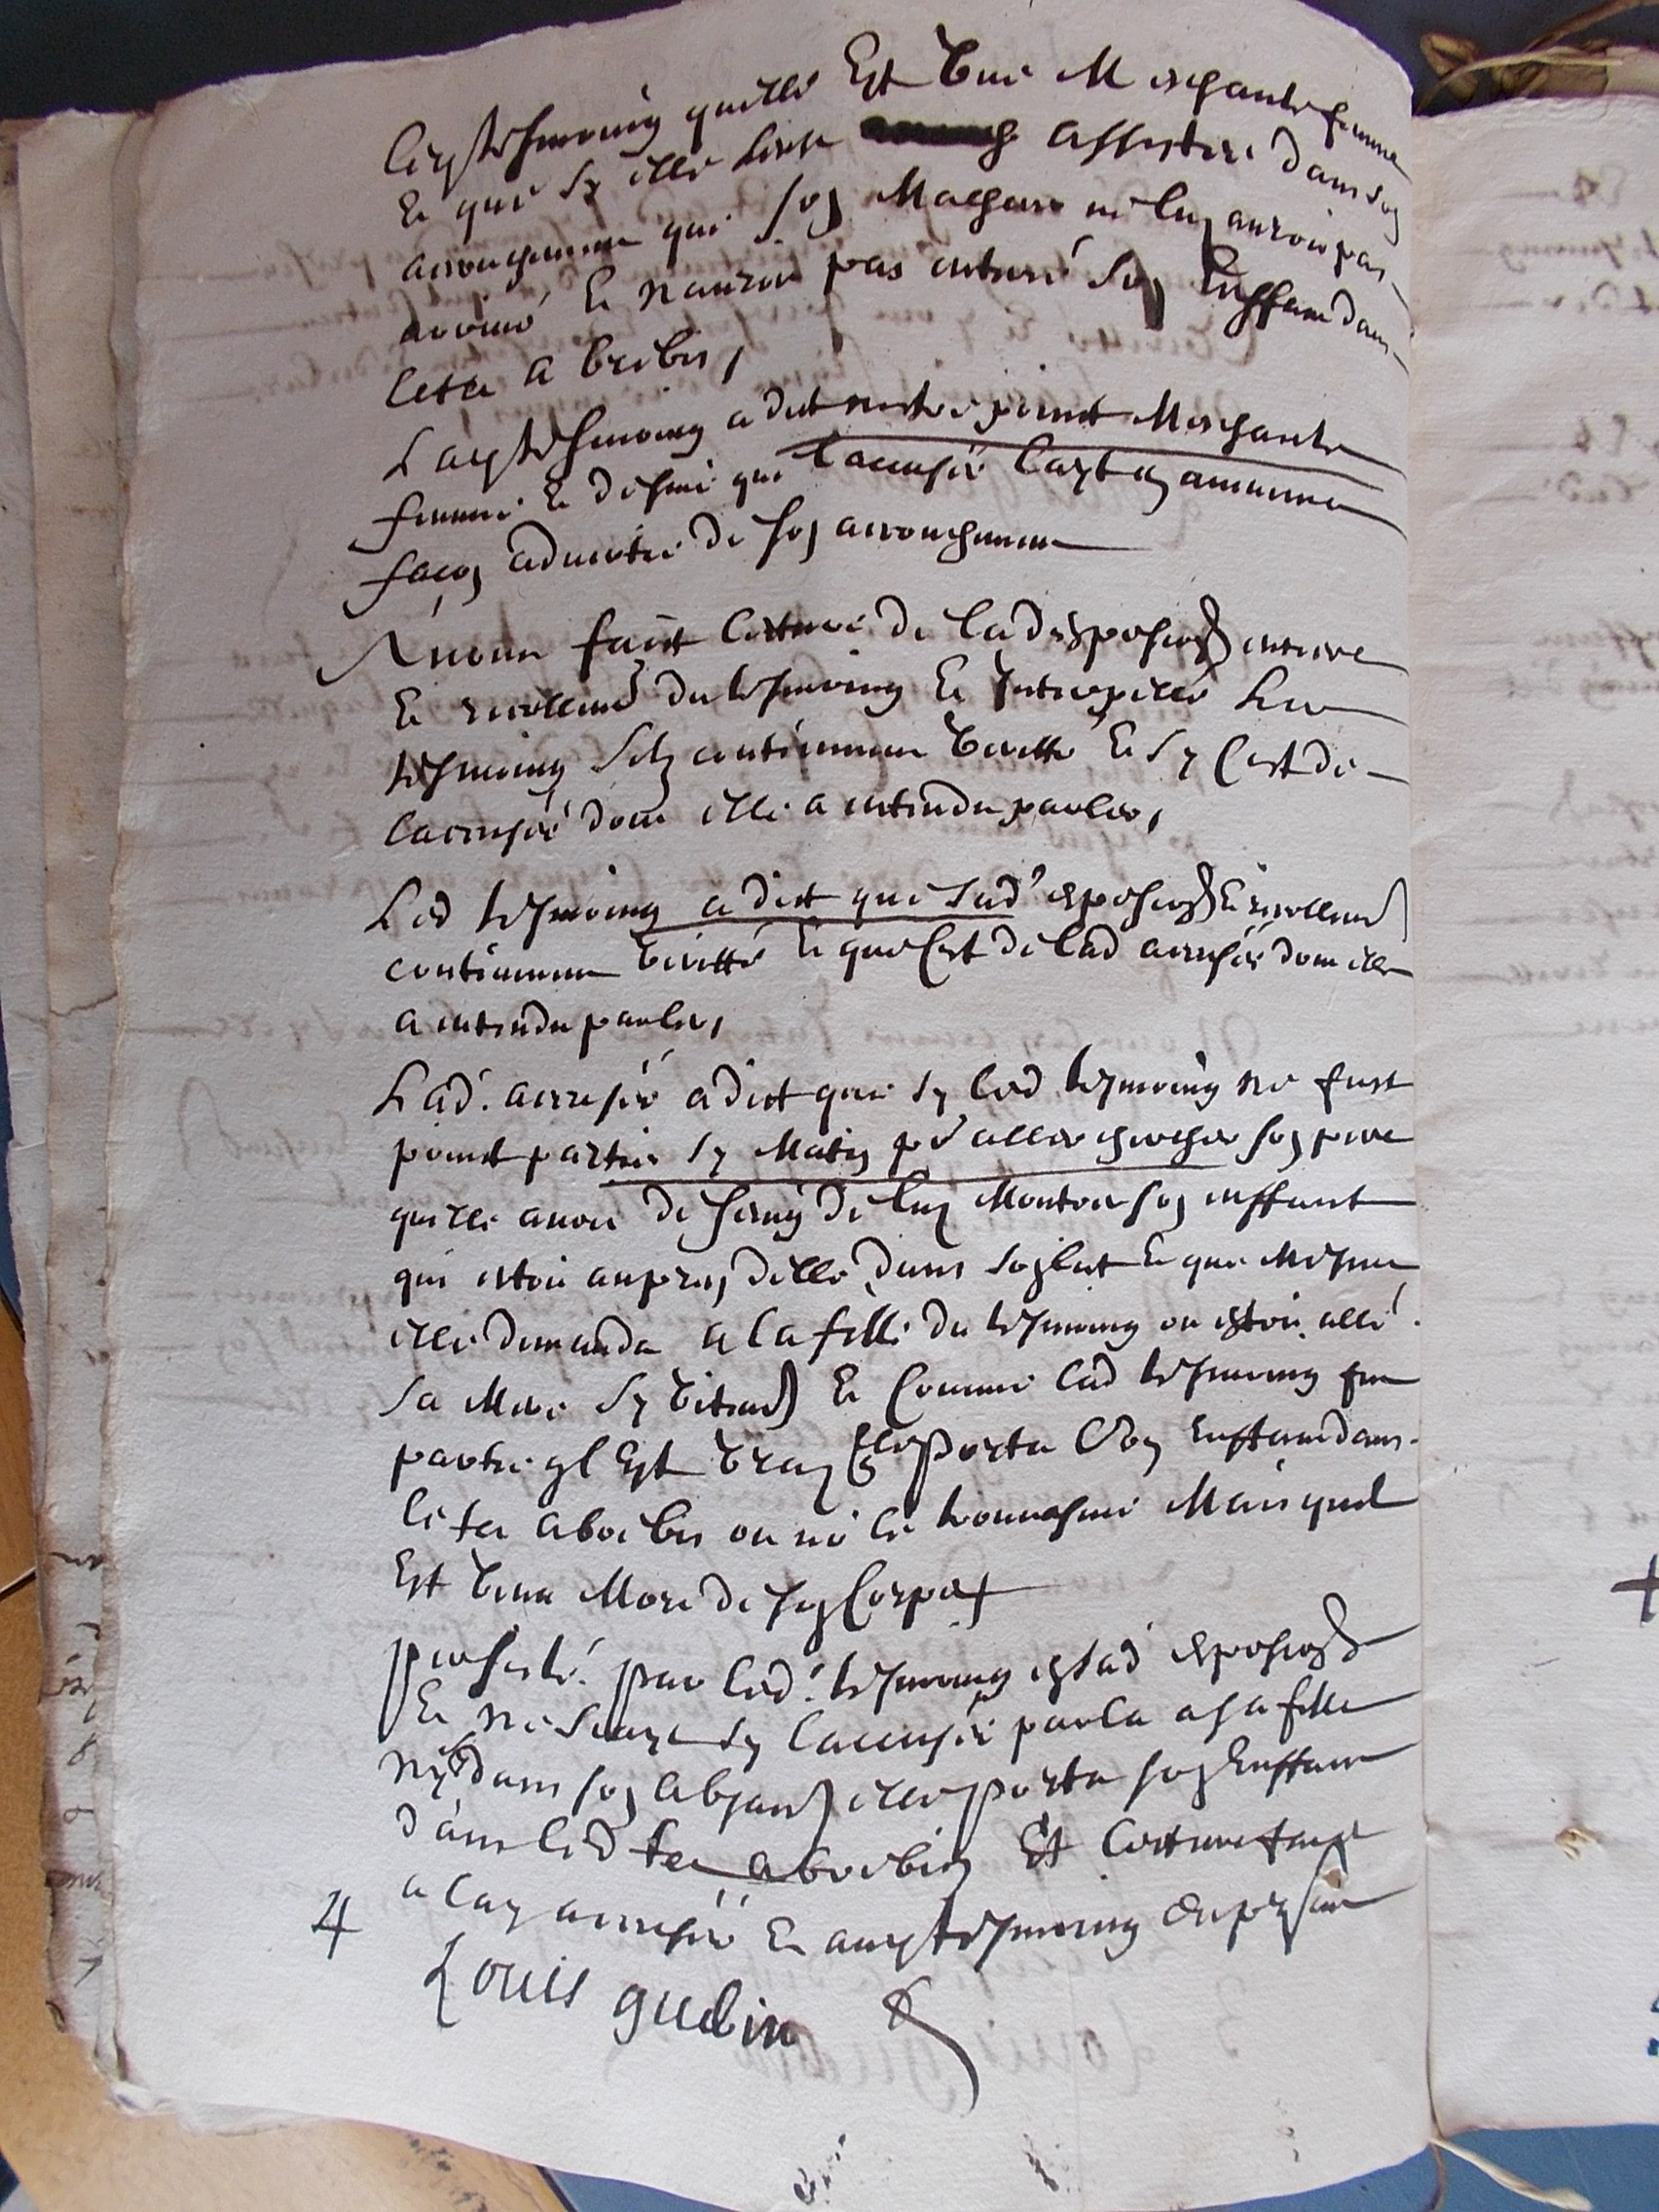 lad tesmoing quelle Est Une Meschante femme
Et que sy elle leust assistee dans son
accouchement que son Malheur ne luy auroit pas
arrivé Et nauroit pas enterré son Enffant dans
letet a brebis,
Lad tesmoing a dict nestre poinct Meschante
femme Et desnie que laccusée layt en aucunne
facon advertie de son accouchement
Avons faict lecture de lad depposion entiere
Et recollemt du tesmoing Et Interpellé led
tesmoing silz contiennent veritté Et sy Cest de
laccusée dont elle a entendu parler,
Led tesmoing a dict que sad depposion Et recollemt
contiennent veritté Et que Cest de lad accusée dont elle
a entendu parler,
Lad. accusée a dict que sy led tesmoing ne fust
poinct partie sy Matin pr aller chercher son pere
quelle avoit desseing de luy Monstrer son enffant
qui estoit aupres delle dans son lict Et que Mesme
elle demanda a la fille du tesmoing ou estoit allé
sa Mere sy vitemt Et Comme lad tesmoing fut
partie yl Est vray qelle porta son Enffant dans
le tet a brebis ou on le trouva Mais quil
Est venu Mort de son Corps
persisté par led. tesmoing en sad depposion
Et ne scayt sy laccusée parla a sa fille
ny sy dans son absance elle porta son Enffant
dans led tet a brebis Et lecture faicte
a lad accusée Et aud tesmoing du present
4
Louis gudin